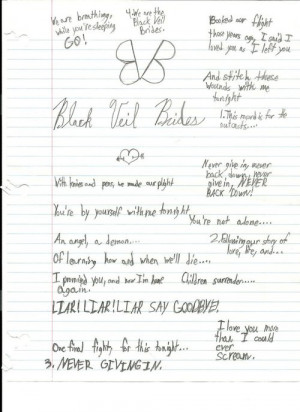 We are breathing,
while you're sleeping
GO!
4. We are the
Black Veil
Brides.
Booked our flight
those years ago, I said I
loved you as I left you
And stitch these
wounds with me
tonight
Black Veil Brides
1. This mood is for the
outcasts...
Never give in, never
back down, never
give in, NEVER
BACK DOWN!
With knives and pens, we made our plight
You're by yourself with me tonight
You're not alone....
An angel, a demon....
2. Following our story of
love, life, and...
Of learning how and when we'll die....
I promised you, and now I'm home
again.
Children surrender....
LIAR! LIAR! LIAR SAY GOODBYE!
I love you more
than I could
ever
scream.
One final fight, for this tonight...
3. NEVER GIVING IN.